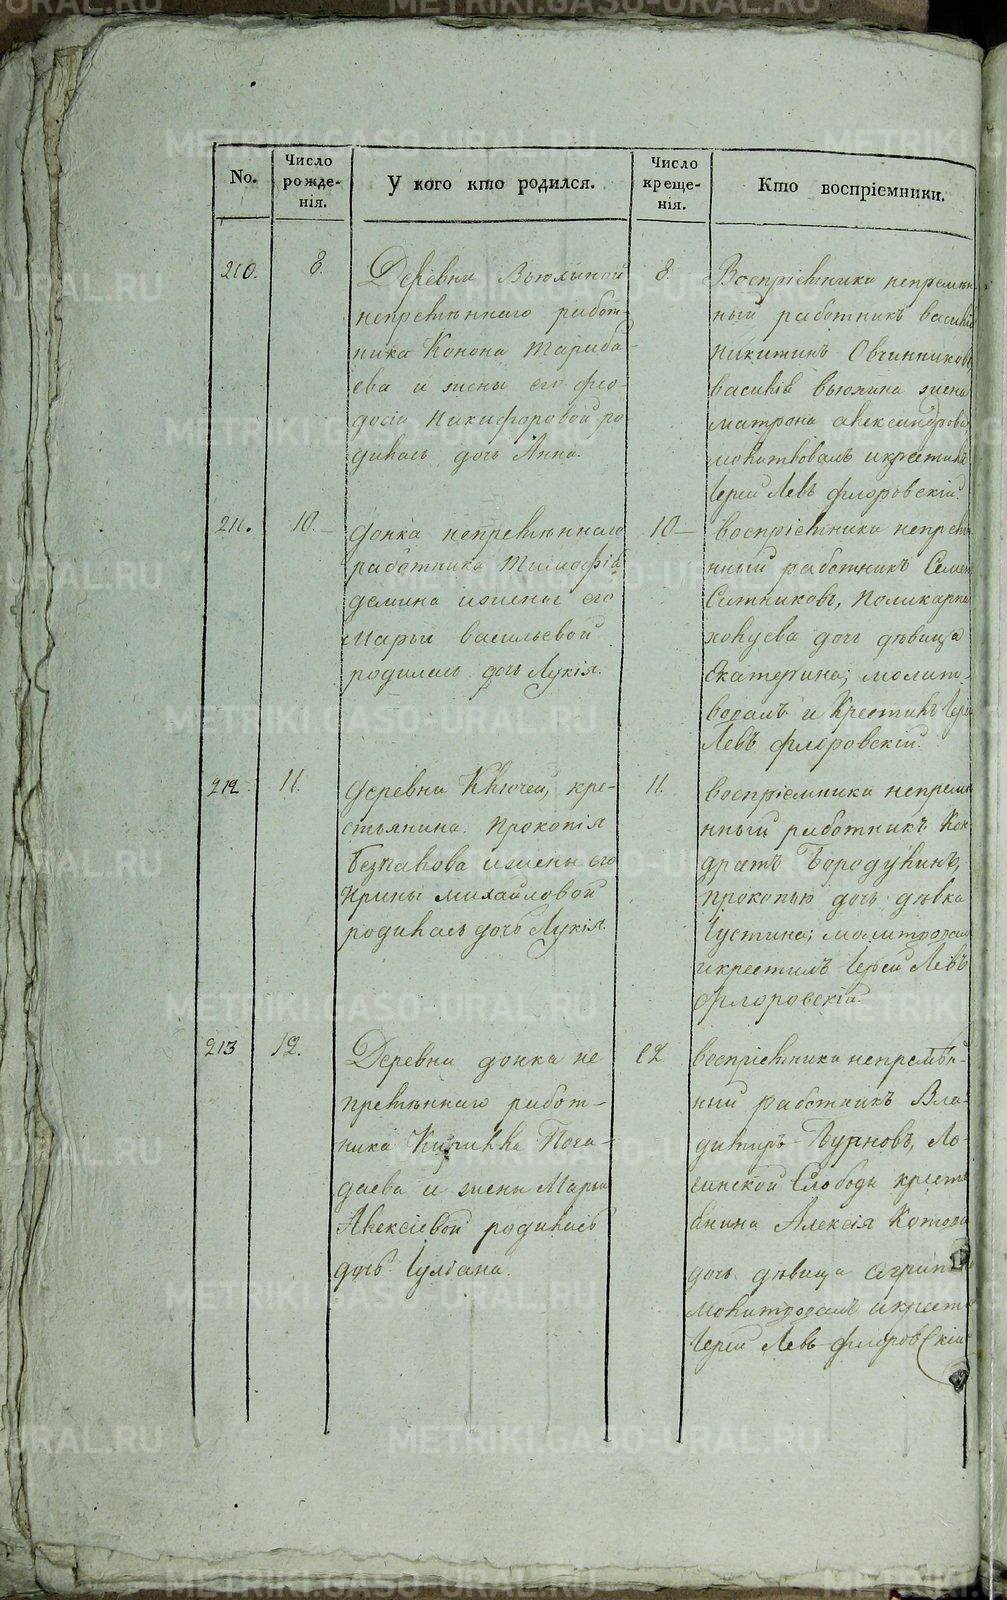 No.
Число рожде-нія.
У кого кто родился.
Число креще-нія.
Кто воспріемники.
210.
8.
Деревни Вьюхиной
непремѣннаго работ-
ника Конона Тариба-
ева и жены его фео-
досіи Никифоровой ро
дилась дочь Анна.
8.
Воспріемники непремѣн
ный работникъ василій
Никитинъ Овчинниковъ,
василія вьюхина жена
матрона александрова
молитвовалъ икрестилъ
Іерей Левъ флоровскій.
211.
10.
донка непремѣннаго
работника Тимофѣя
демина ижены его
Марьи васильевой
родилась дочь Лукія.
10
воспріемники непремѣ
нный работникъ Семен
Ситниковъ, Поликарпа
дочь дѣвица
Екатерина; молит-
вовалъ и Крестилъ Іерей
Левъ флоровскій.
212
11.
деревни Ключей, кре-
стьянина Прокопія
ижены его
Ирины михайловой
родилась дочь Лукія.
11.
воспріемники непремѣ
нный работникъ Кон
дратъ Бородулинъ,
прокопью дочь дѣвка
Іустина; молитвовал
икрестилъ Іерей Левъ
Флоровскій.
213
12.
Деревни донка не
премѣннаго работ-
ника Кирилла Пога-
даева и жены Марьи
Алексіевой родилась
дочь Іуліана.
12
воспріемники непремѣн-
ный работникъ Вла-
димиръ Дурновъ, Ло-
синской Слободы крестья
янина Алексія Котова
дочь дѣвица агрипина
молитвовалъ икрести
Іерей Левъ флоровскій
METRIKI.GASO-URAL.RU